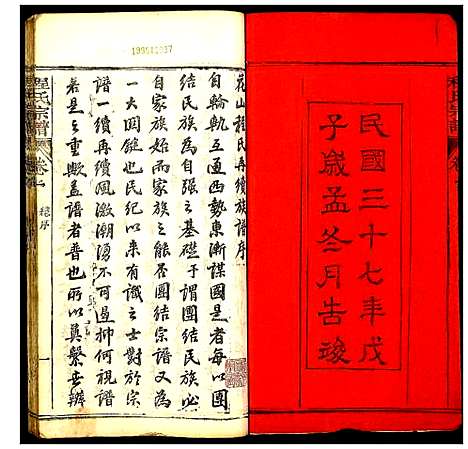 民國三十七年戊
子歲孟冬月告竣
程氏宗譜
卷一
花山程氏再續族譜序
自輪軌互通西勢東漸謀國是者每以團
結民族為自強之基礎于謂團結民族必
自家族始而家族之能否團結宗譜又為
一大團鍵也民紀以來有識之士對於宗
譜一續再續風激潮湧不可遏抑何視譜
若是之重歟蓋譜者普也所以奠繫世辨
程氏宗譜
卷一
總序
一